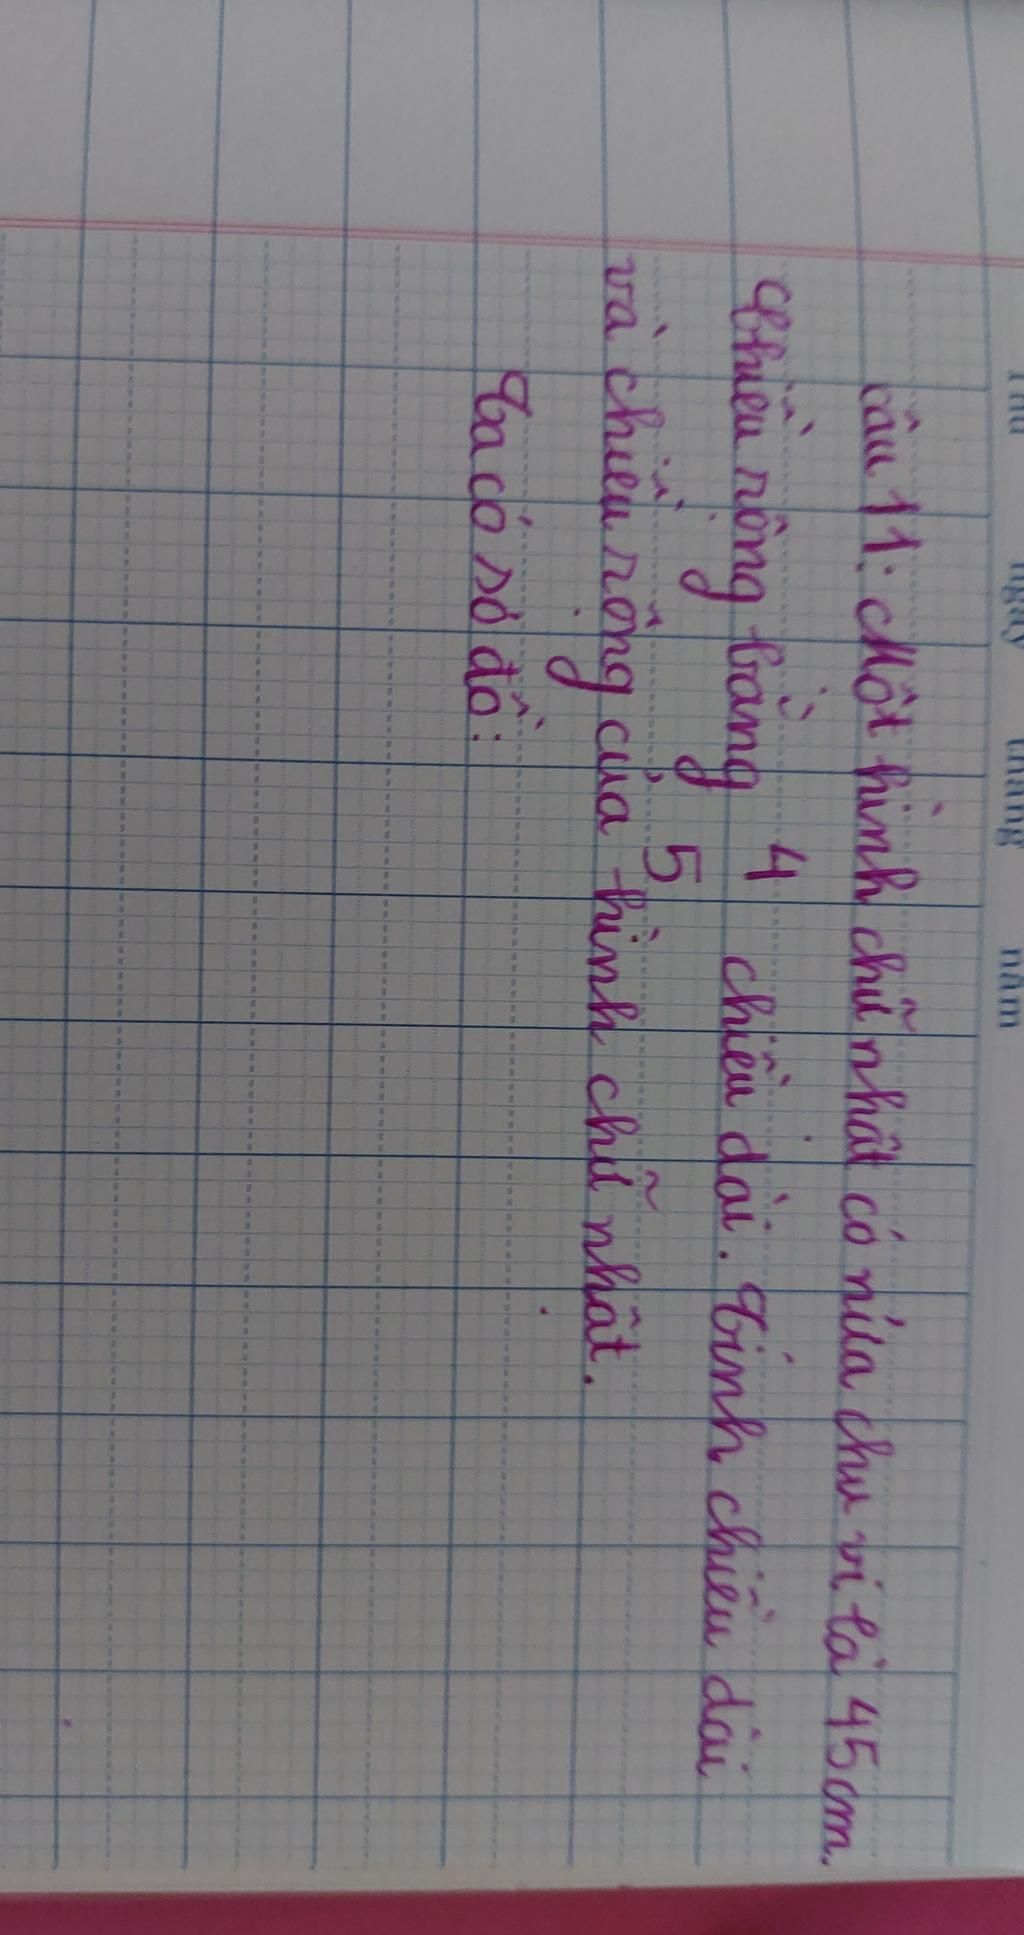 Thứ ngày tháng năm
Câu 11: Một hình chữ nhật có nửa chu vi là 45cm.
Chiều rộng bằng 4 chiều dài. Tính chiều dài
5
và chiều rộng của hình chữ nhật.
Ta có sơ đồ: